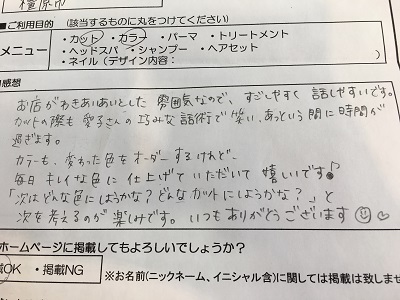 橿原市
■ご利用目的 (該当するものに丸をつけてください)
メニュー
・カット ・カラー ・パーマ ・トリートメント
・ヘッドスパ ・シャンプー ・ヘアセット
・ネイル(デザイン内容: )
感想
お店がわきあいあいとした 雰囲気なので、すごしやすく 話しやすいです。
カットの際も 愛子さんの 巧みな 話術で 笑い、あっという間に 時間が
過ぎます。
カラーも、変わった色を オーダーするけれど、
毎日 キレイな色に 仕上げて いただいて 嬉しいです♪
「次はどんな色にしようかな?どんなカットにしようかな?」と
次を考えるのが 楽しみです。いつもありがとうございます ☺♡
ホームページに掲載してもよろしいでしょうか?
載OK ・掲載NG
※お名前(ニックネーム、イニシャル含)に関しては掲載は致しませ